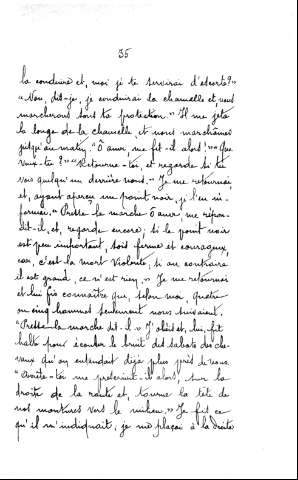 35
la conduire et, moi je te servirai d'escorte?"
"Non, dit-je, je conduirai la chamelle et nous
marcherons sous ta protection." Il me jeta
la longe de la chamelle, et nous marchâmes
jusqu'au matin. "Ô amr me fit-il alors!" "Que
veux-tu?" "Retourne-toi, et regarde si tu
vois quelqu'un derrière nous." Je me retournai,
et, ayant aperçu un point noir, je l'en in-
formai. "Presse la marche ô amr, me répon-
dit-il et, regarde encore; si le point noir
est peu important, sois ferme et courageux,
car, c'est la mort violente, si au contraire
il est grand, ce n'est rien." Je me retournai
et lui fis connaître que, selon moi, quatre
ou cinq hommes seulement nous suivaient.
"Presse la marche dit-il." J'obéis et, lui, fit
halte pour écouter le bruit des sabots des che-
vaux qu'on entendait déjà plus près de nous.
"Arrête-toi me prescrivit-il alors, sur la
droite de la route et, tourne la tête de
nos montures vers le milieu." Je fis ce
qu'il m'indiquait; je me plaçai à la droite